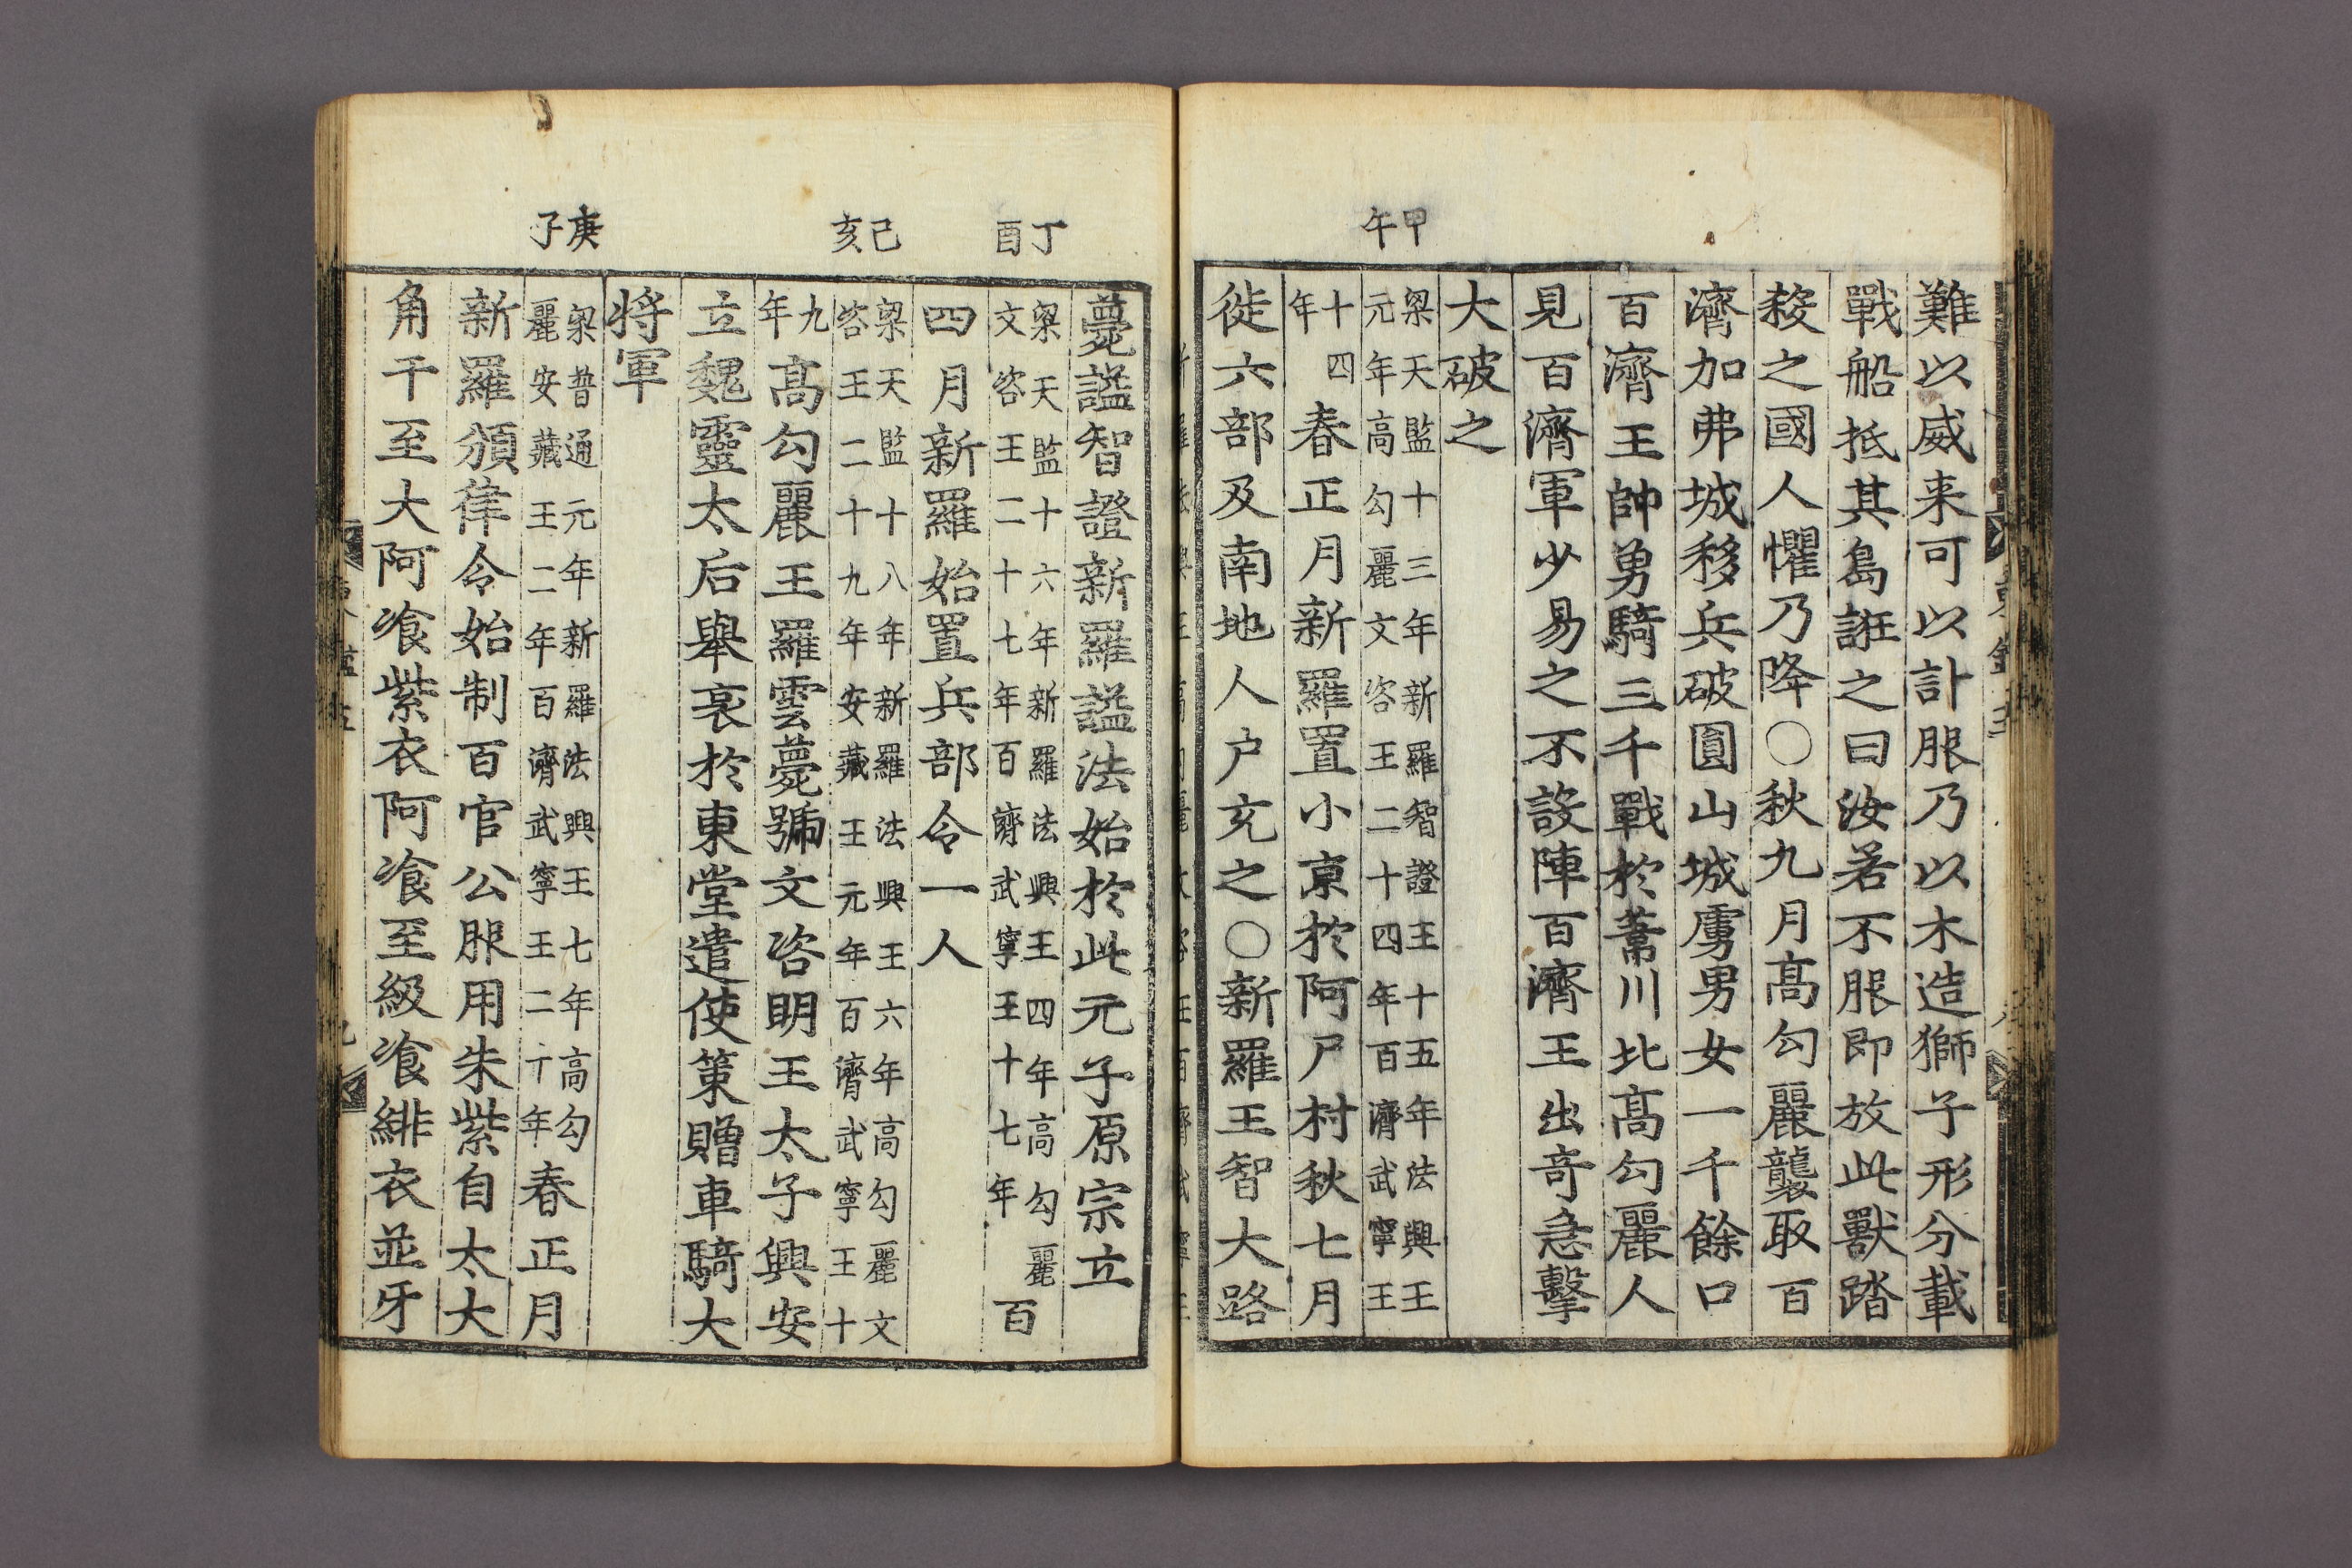 難以威来可以計服乃以木造獅子形分載
戰船抵其島誑之曰汝若不服即放此獸踏
殺之國人懼乃降○秋九月高勾麗襲取百
濟加弗城移兵破圓山城虜男女一千餘口
百濟王帥勇騎三千戰於葦川北高勾麗人
見百濟軍少易之不設陣百濟王出奇急擊
大破之
甲午
梁天監十三年新羅智證王十五年法興王
元年高勾麗文咨王二十四年百濟武寧王
十四
年
春正月新羅置小京於阿尸村秋七月
徙六部及南地人戶充之○新羅王智大路
薨謚智證新羅謚法始於此元子原宗立
丁酉
梁天監十六年新羅法興王四年高勾麗
文咨王二十七年百濟武寧王十七年
百
四月新羅始置兵部令一人
己亥
梁天監十八年新羅法興王六年高勾麗文
咨王二十九年安藏王元年百濟武寧王十
九
年
高勾麗王羅雲薨號文咨明王太子興安
立魏靈太后舉哀於東堂遣使策贈車騎大
將軍
庚子
梁普通元年新羅法興王七年高勾
麗安藏王二年百濟武寧王二十年
春正月
新羅頒律令始制百官公服用朱紫自太大
角干至大阿飡紫衣阿飡至級飡緋衣並牙